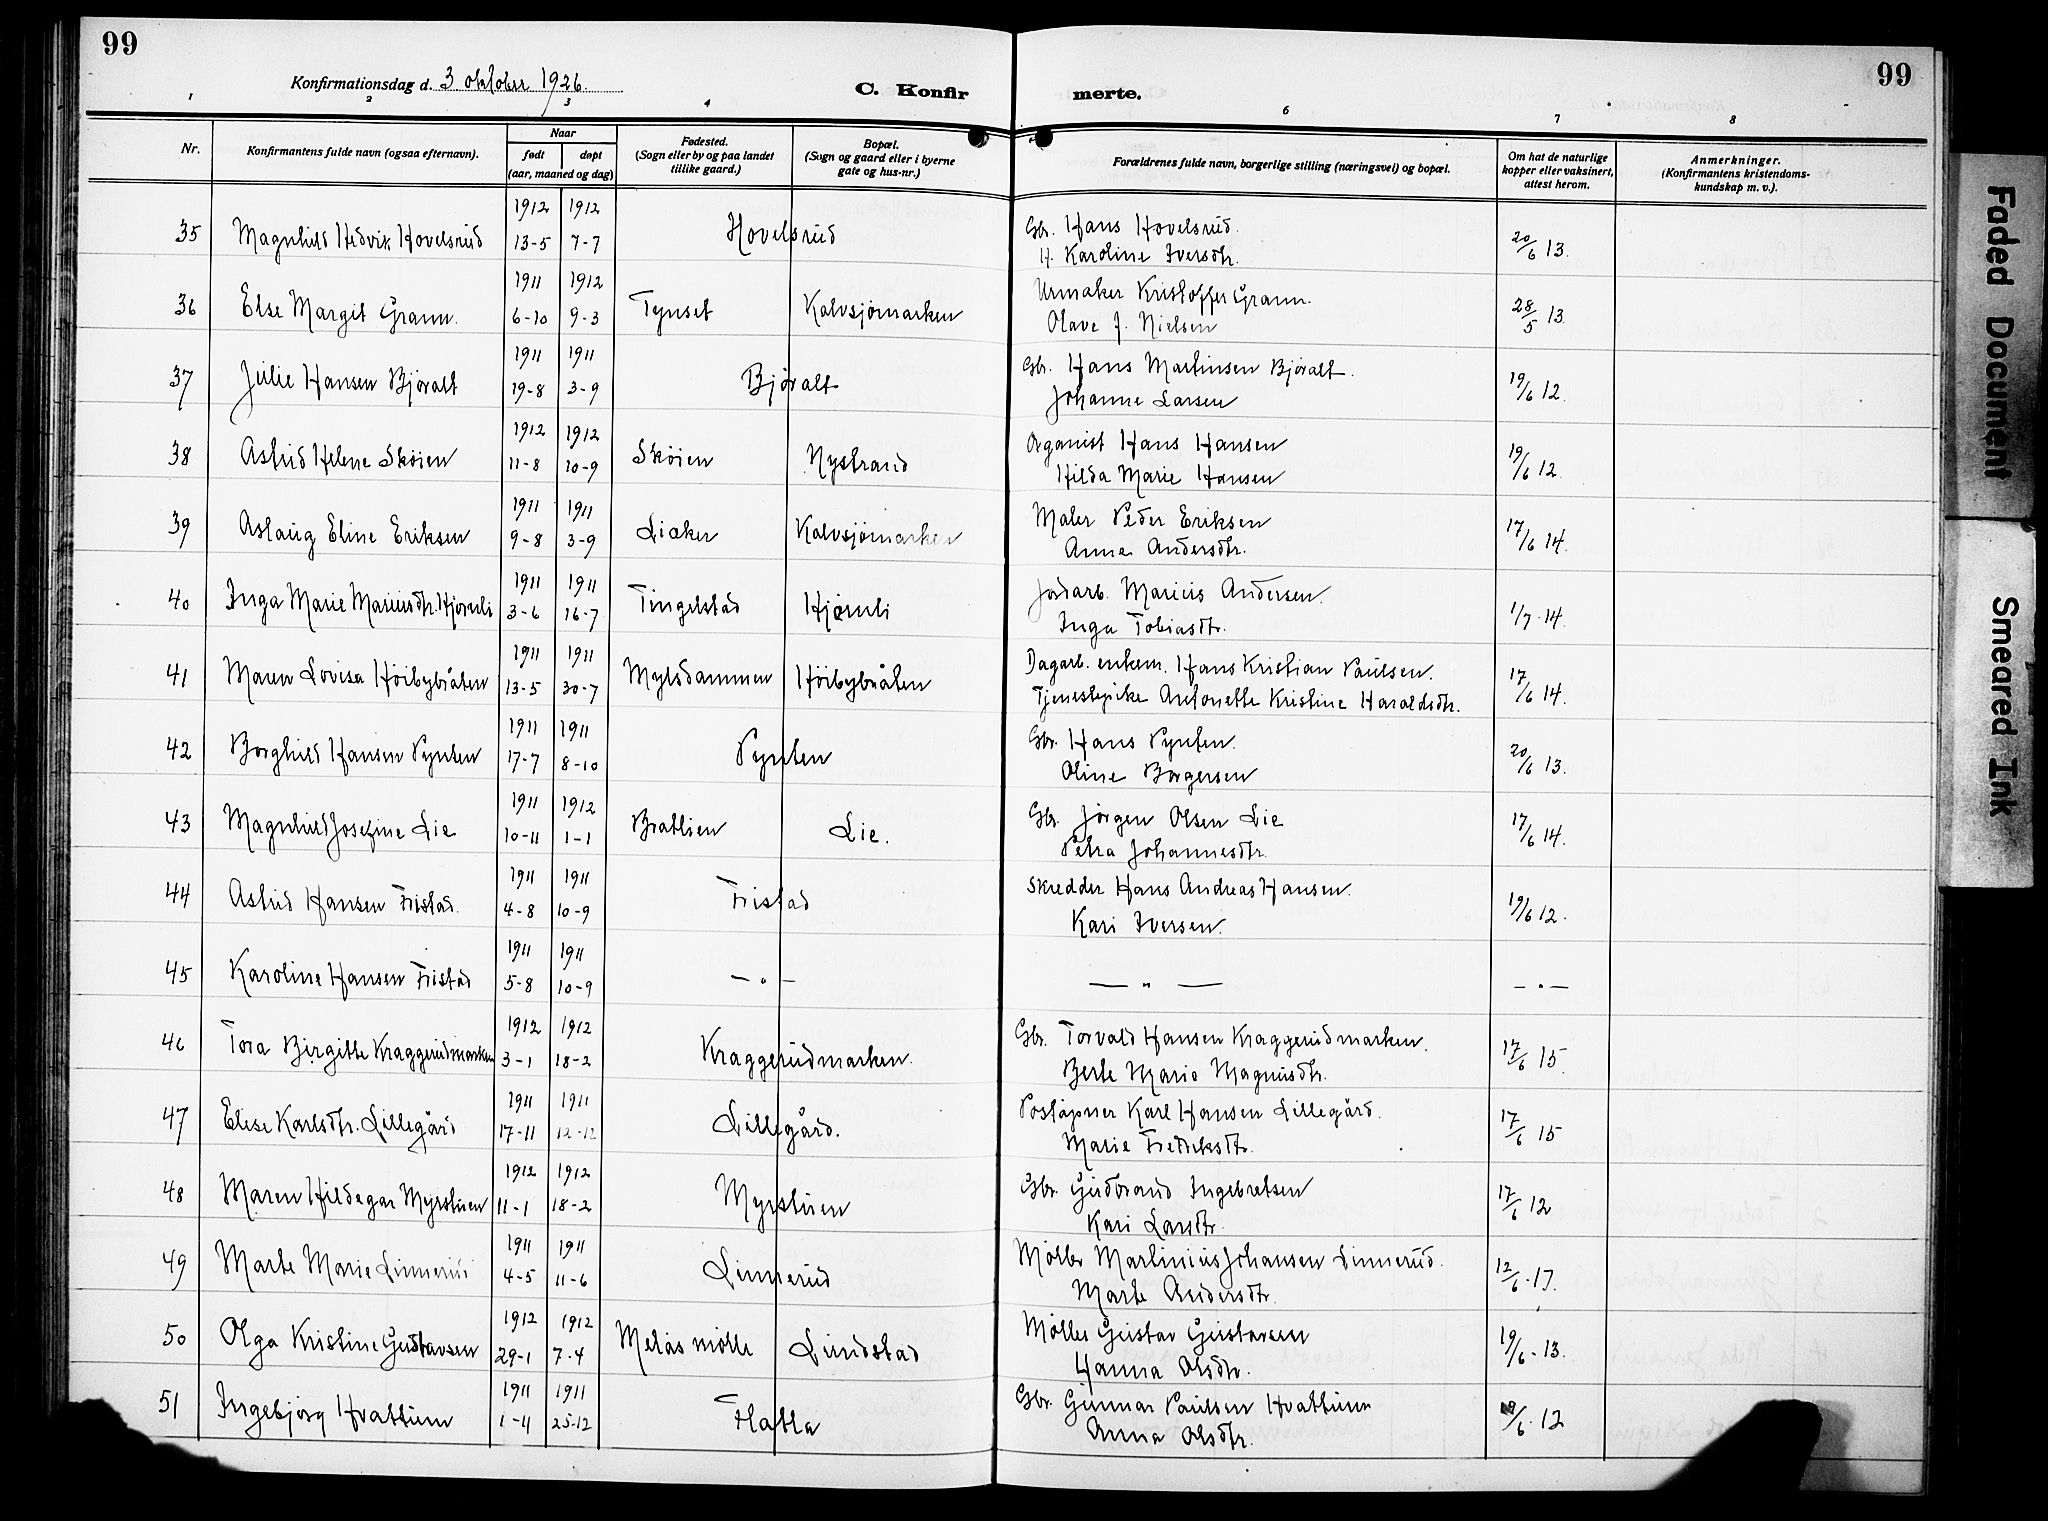 99
99
Konfirmationsdag d. 3 oktober 1926.
C. Konfirmerte.
1 2 3 4 6 7 8
Nr.
Konfirmantens fulde navn (ogsaa efternavn).
Naar
født døpt
(aar, maaned og dag)
Fødested.
(Sogn eller by og paa landet
tillike gaard.)
Bopæl.
(Sogn og gaard eller i byerne
gate og hus-nr.)
Forældrenes fulde navn, borgerlige stilling (næringsvei) og bopæl.
Om hat de naturlige
kopper eller vaksinert,
attest herom.
Anmerkninger.
(Konfirmantens kristendoms-
kundskap m. v.).
1912 1912 Gbr. Hans Hovelsrud.
35 Magnhild Hedvik Hovelsrud 13-5 7-7 Hovelsrud H. Karoline Iversdtr. 20/6 13.
1911 1912 Urmaker Kristoffer Grann.
36 Else Margit Grann. 6-10 9-3 Tynset Kalvsjømarken Olave J. Nielsen 28/5 13.
1911 1911 Gbr. Hans Martinsen Bjøralt.
37 Julie Hansen Bjøralt 19-8 3-9 Bjøralt Johanne Larsen 19/6 12.
1912 1912 Organist Hans Hansen
38 Astrid Helene Skøien 11-8 10-9 Skøien Nystrand Hilda Marie Hansen 19/6 12.
1911 1911 Maler Peder Eriksen
39 Aslaug Eline Eriksen 9-8 3-9 Liaker Kalvsjømarken Anne Andersdtr. 17/6 14.
1911 1911 Jordarb. Marius Andersen.
40 Inga Marie Mariusdtr. Hjørnli 3-6 16-7 Tingelstad Hjørnli Inga Tobiasdtr. 1/7. 14.
1911 1911 Dagarb. enkem. Hans Kristian Paulsen.
41 Maren Lovisa Høibybråten 13-5 30-7 Mylsdammen Høibybråten Tjenestepike Antonette Kristine Haraldsdtr. 17/6 14.
1911 1911 Gbr. Hans Pynten.
42 Borghild Hansen Pynten 17-7 8-10 Pynten Oline Borgersen 20/6 13.
1911 1912 Gbr. Jörgen Olsen Lie
43 Magnhild Josefine Lie 10-11 1-1 Brattlien Lie. Petra Johannesdtr. 17/6 14.
1911 1911 Skredder Hans Andreas Hansen.
44 Astrid Hansen Fristad. 4-8 10-9 Fristad Kari Iversen. 19/6 12.
1911 1911
45 Karoline Hansen Fristad 5-8 10-9 — " — — " — — " —
1912 1912 Gbr. Torvald Hansen Kraggerudmarken.
46 Tora Birgitte Kraggerudmarken 3-1 18-2 Kraggerudmarken. Berte Marie Magnusdtr. 17/6 15.
1911 1911 Poståpner Karl Hansen Lillegård.
47 Elise Karlsdtr. Lillegård 17-11 12-12 Lillegård. Marie Fredriksdtr. 17/6 15
1912 1912 Gbr. Gudbrand Ingebretsen
48 Maren Hildegar Myrstuen 11-1 18-2 Myrstuen Kari Larsdtr. 17/6 12
1911 1911 Møller Martinius Johansen Linnerud.
49 Marte Marie Linnerud 4-5 11-6 Linnerud Marte Andersdtr. 12/6. 17.
1912 1912 Møller Gustav Gustavsen
50 Olga Kristine Gustavsen 29-1 7-4 Melås mølle Lundstad Hanna Olsdtr. 19/6. 13.
1911 1911 Gbr. Gunnar Paulsen Hvattum
51 Ingebjørg Hvattum 1-4 25-12 Flatla Anna Olsdtr. /6. 12
Faded Document
Smeared Ink